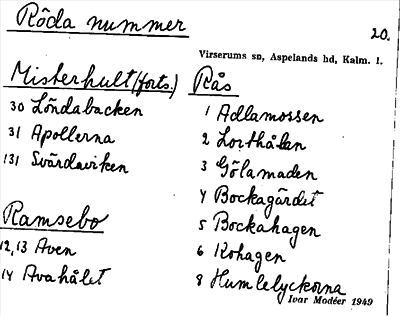 Röda nummer
20.
Virserums sn, Aspelands hd, Kalm. l.
Misterhult (forts.)
30 Löndabacken
31 Apollerna
131 Svärdsviken
Ramsebo
12, 13 Aven
14 Avahålet
Rås
1 Adlamossen
2 Lorthålan
3 Gölamaden
4 Bockagärdet
5 Bockahagen
6 Kohagen
8 Humlelyckorna
Ivar Modéer 1949